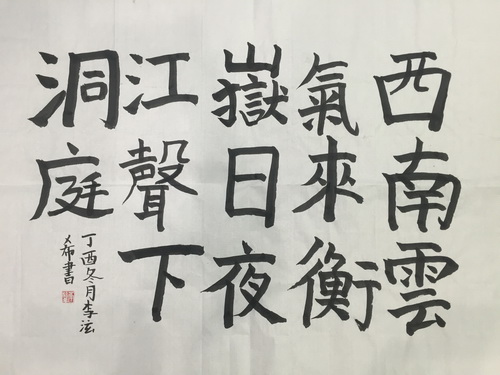 西南雲
氣來衡
嶽日夜
江聲下
洞庭
丁酉冬月李泫
希書